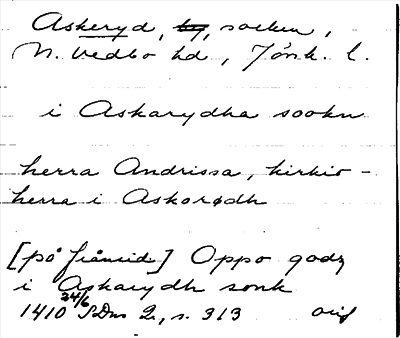 Askeryd, by, socken,
N. Vedbo hd, Jönk. l.
i Askarydha sookn
herra Andrissa, kirkio-
herra i Askorødh
[på frånsid.] Oppo godz
i Askarydh sonk
1410 24/6 SDns 2, s. 313 orig